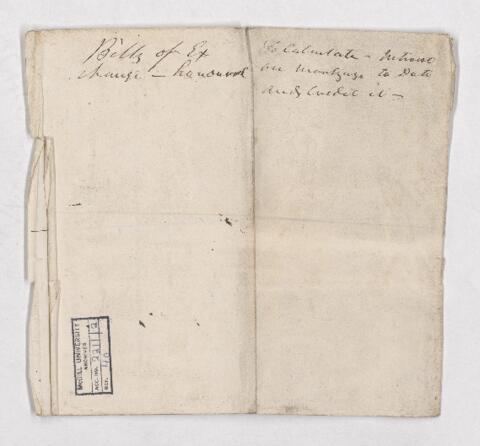 Bills of Ex
change – honoured
To Calculate – Interest
on Mortgage to Date
and Credit it –
McGILL UNIVERSITY
ARCHIVES
ACC. NO. 2211/2
REF. 40